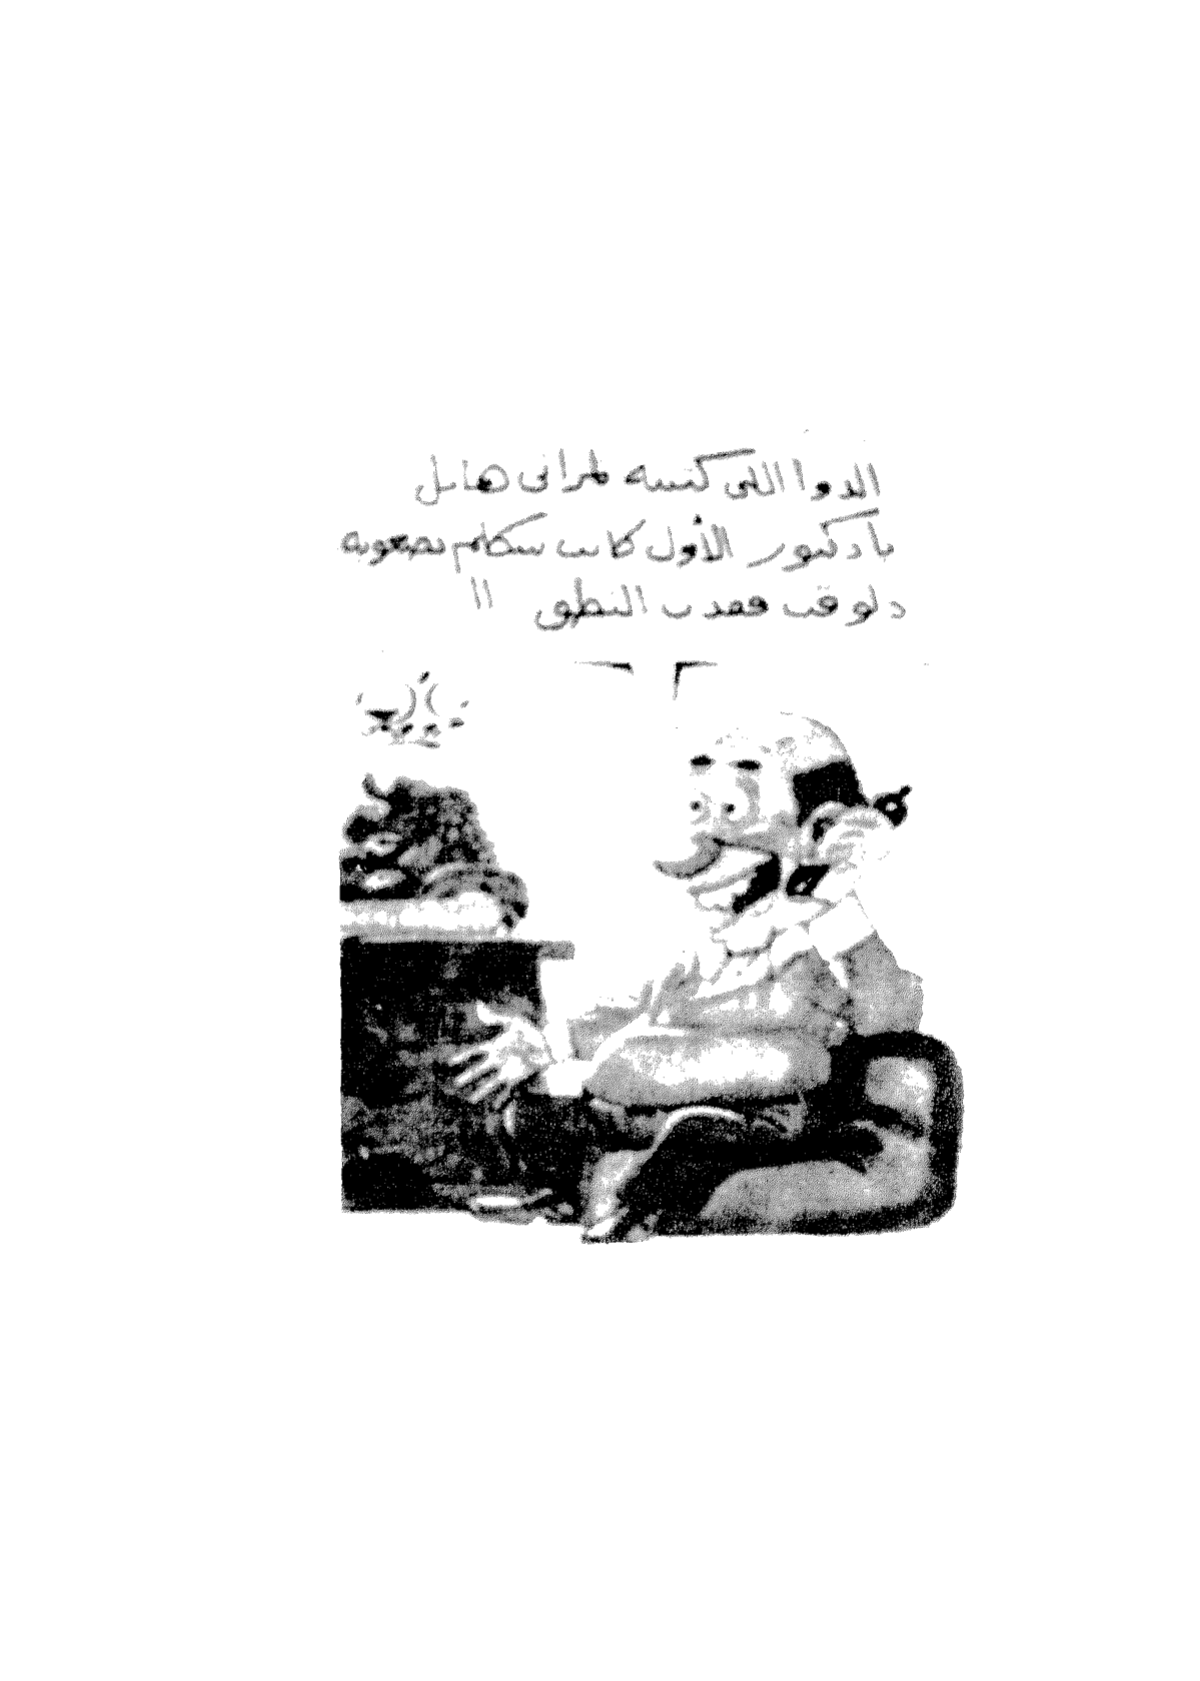 الدوا اللى كتبته لمراتى هايل
يا دكتور الأول كانت بتتكلم بصعوبة
دلوقت فقدت النطق !!